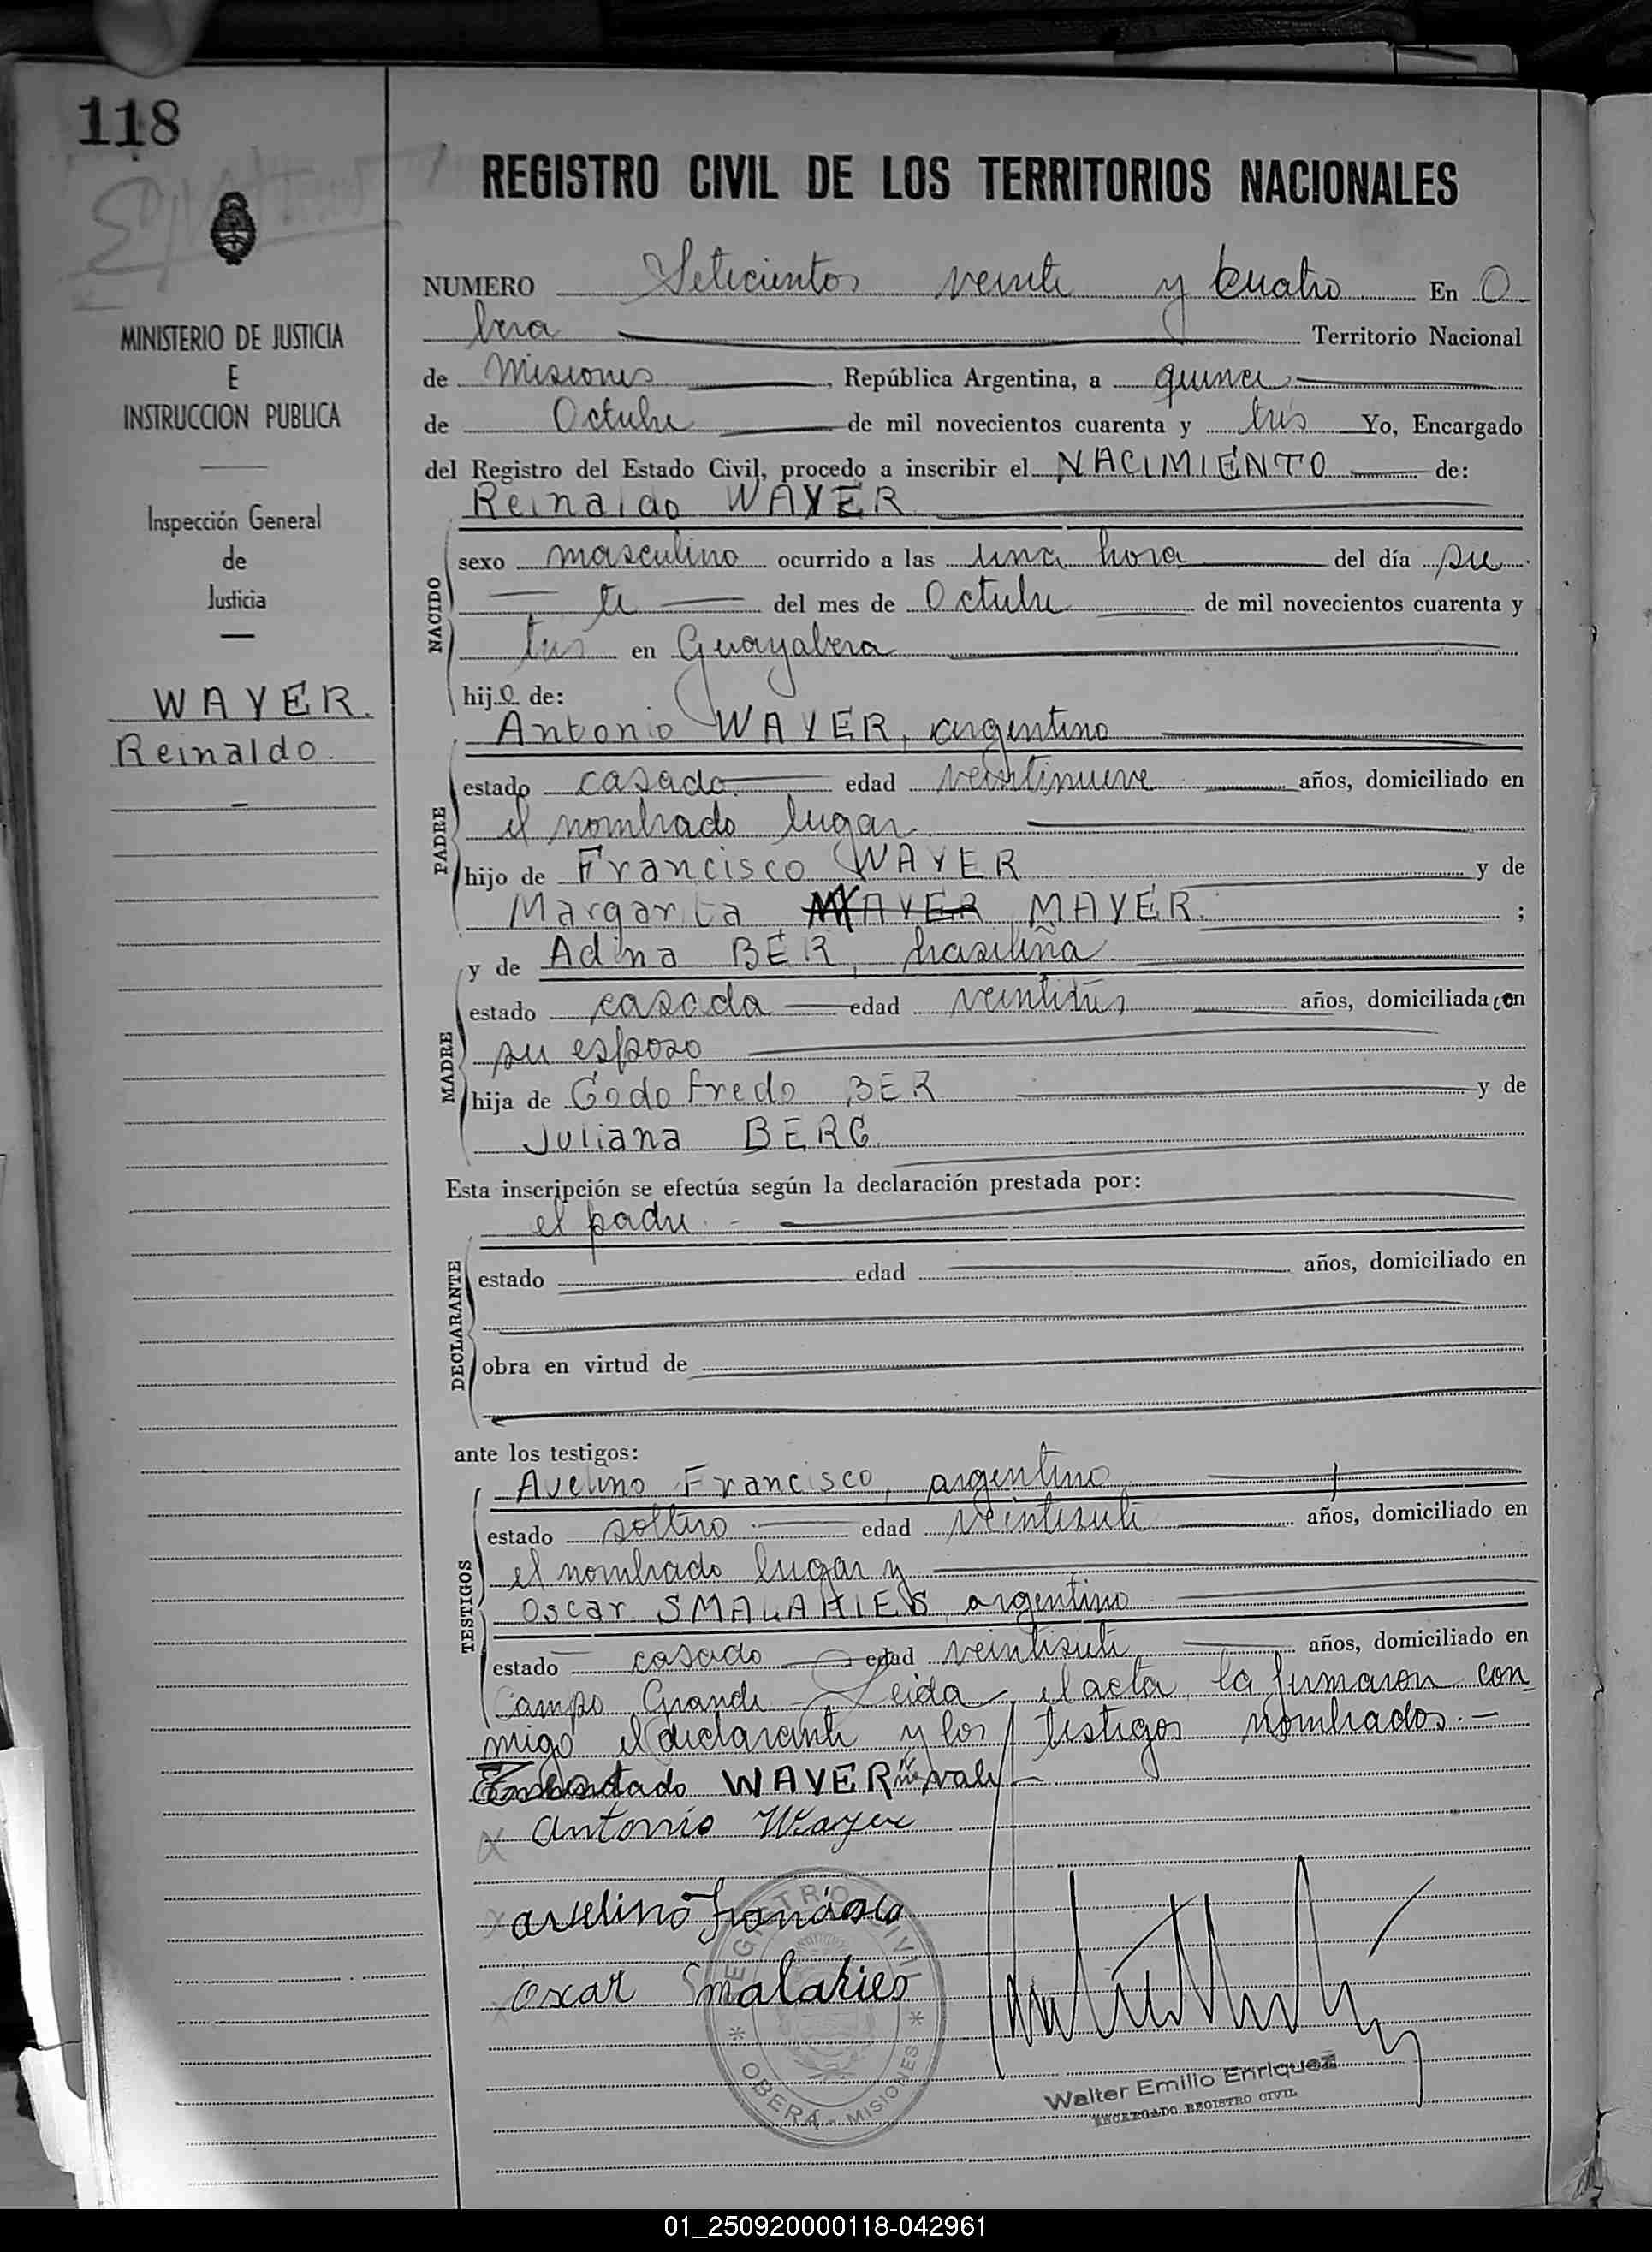 118
MINISTERIO DE JUSTICIA
E
INSTRUCCION PUBLICA
Inspección General
de
Justicia
WAYER.
Reinaldo.
REGISTRO CIVIL DE LOS TERRITORIOS NACIONALES
NUMERO Setecientos veinte y cuatro En O
bera Territorio Nacional
de Misiones, República Argentina, a quince
de Octubre de mil novecientos cuarenta y tres Yo, Encargado
del Registro del Estado Civil, procedo a inscribir el NACIMIENTO de:
Reinaldo WAYER
NACIDO
sexo masculino ocurrido a las una hora del día sie
te del mes de Octubre de mil novecientos cuarenta y
tres en Guayabera
hijo de:
Antonio WAYER, argentino
PADRE
estado casado edad veintinueve años, domiciliado en
el nombrado lugar
hijo de Francisco WAYER y de
Margarita MAYER ;
y de Adina BER, brasileña
MADRE
estado casada edad veintitrés años, domiciliada con
su esposo
hija de Godofredo BER y de
Juliana BERG
Esta inscripción se efectúa según la declaración prestada por:
el padre. -
DECLARANTE
estado edad años, domiciliado en
obra en virtud de
ante los testigos:
TESTIGOS
Avelino Francisco, argentino
estado soltero edad veintisiete años, domiciliado en
el nombrado lugar y
Oscar SMALAKIES, argentino
estado casado edad veintisiete años, domiciliado en
Campo Grande - Leida el acta la firmaron con
migo el declarante y los testigos nombrados. -
Enmendado WAYER vale -
Antonio Wayer
avelino Francisco
oscar Smalakies
REGISTRO CIVIL
* OBERA - MISIONES *
Walter Emilio Enriquez
ENCARGADO REGISTRO CIVIL
01_250920000118-042961